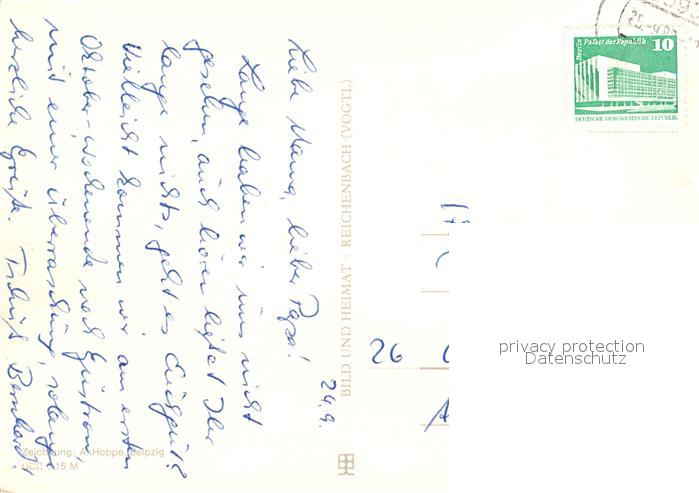 24.9.
Liebe Mama, lieber Papa!
Lange haben wir uns nicht
gesehen, auch hören ließet Ihr
lange nichts, geht es Euch gut?
Vielleicht kommen wir am ersten
Oktober-Wochenende nach Güstrow,
mit einer Überraschung, solange
herzliche Grüße. Tschüß Bernhard!
Zeichnung: A. Hoppe, Leipzig
15 M
BILD UND HEIMAT · REICHENBACH (VOGTL)
Berlin Palast der Republik 10
DEUTSCHE DEMOKRATISCHE REPUBLIK
26
privacy protection
Datenschutz